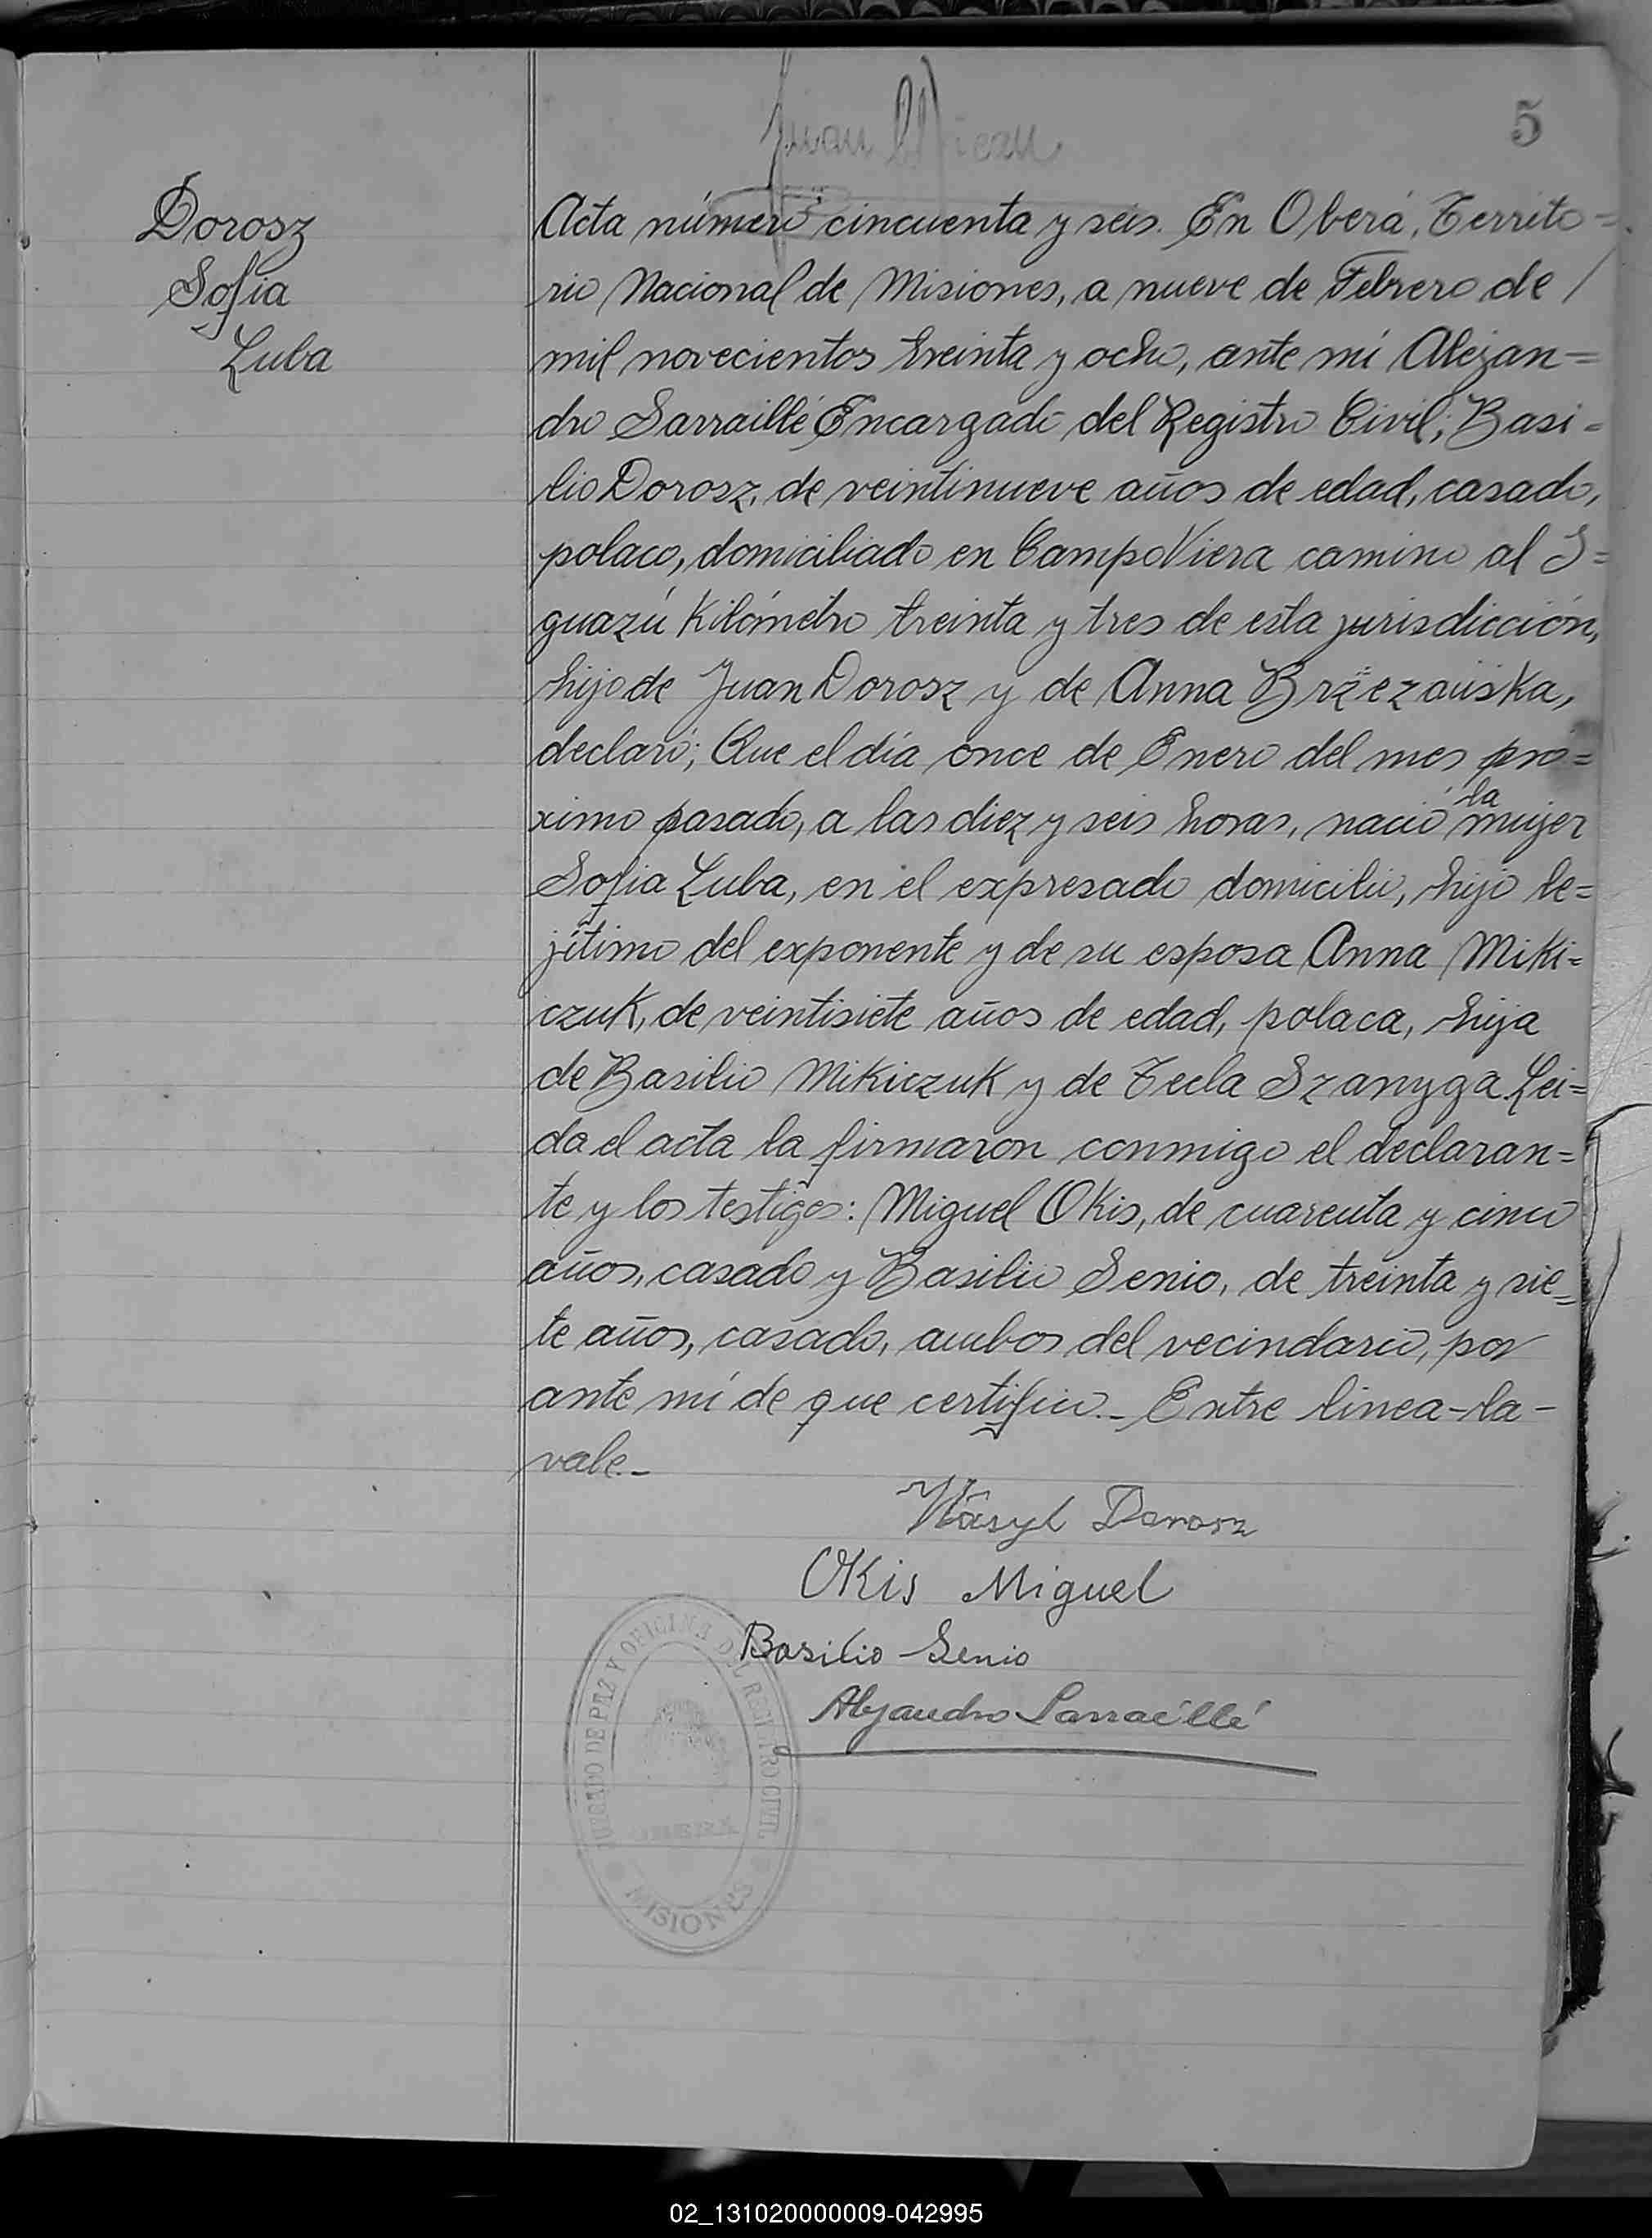 5
Juan
Dorosz
Sofia
Luba
Acta número cincuenta y seis. En Oberá, Territo=
rio Nacional de Misiones, a nueve de Febrero de /
mil novecientos treinta y ocho, ante mí Alejan=
dro Sarraillé Encargado del Registro Civil; Basi=
lio Dorosz, de veintinueve años de edad, casado,
polaco, domiciliado en Campo Viera camino al I=
guazú Kilómetro treinta y tres de esta jurisdicción,
hijo de Juan Dorosz y de Anna Brzezańska,
declaró; Que el día once de Enero del mes pró=
ximo pasado, a las diez y seis horas, nació la mujer
Sofia Luba, en el expresado domicilio, hijo le=
jítimo del exponente y de su esposa Anna Miki=
czuk, de veintisiete años de edad, polaca, hija
de Basilio Mikiczuk y de Tecla Szanyga. Lei=
da el acta la firmaron conmigo el declaran=
te y los testigos: Miguel Okis, de cuarenta y cinco
años, casado y Basilio Senio, de treinta y sie=
te años, casado, ambos del vecindario, por
ante mí de que certifico._ Entre linea-la-
vale._
Wasyl Dorosz
Okis Miguel
Basilio Senio
Alejandro Sarraillé
JUZGADO DE PAZ Y OFICINA DEL REGISTRO CIVIL
OBERA
MISIONES
02_131020000009-042995